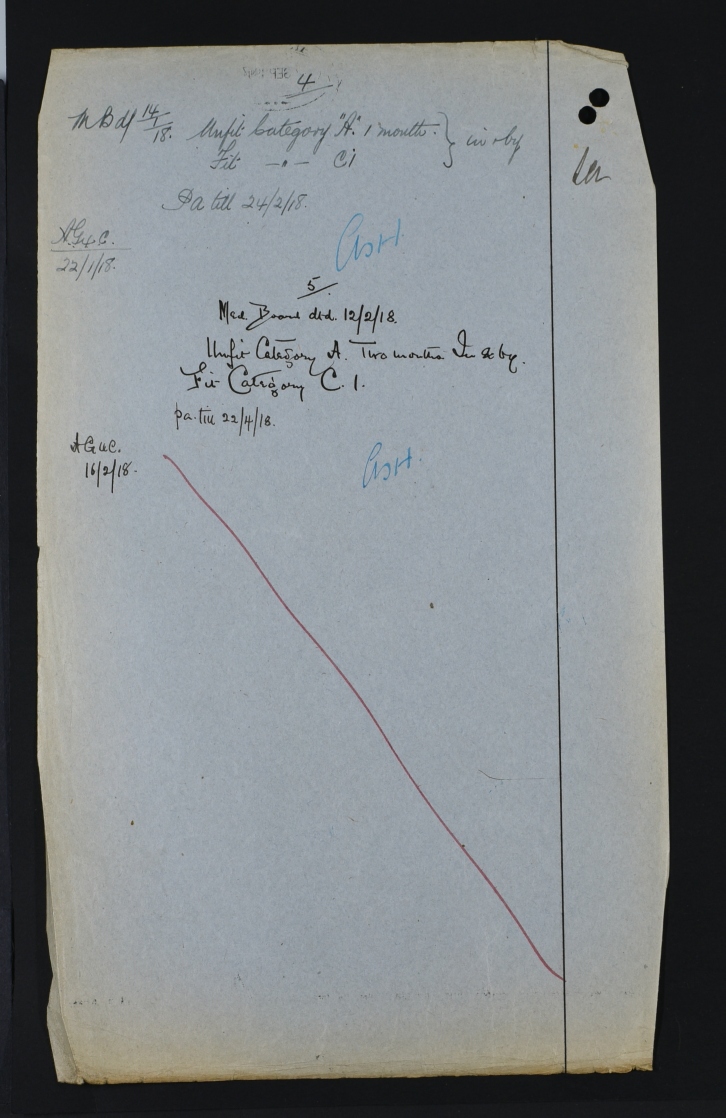 4
M B df 14/1/18. Unfit Category "A". 1 month. } in & by
Fit —"— C1
Pa till 24/2/18.
A.G.4.C.
22/1/18.
5
Med. Board dtd. 12/2/18.
Unfit Category A. Two months In & by.
Fit Category C. 1.
pa. till 22/4/18.
A G 4 C.
16/2/18.